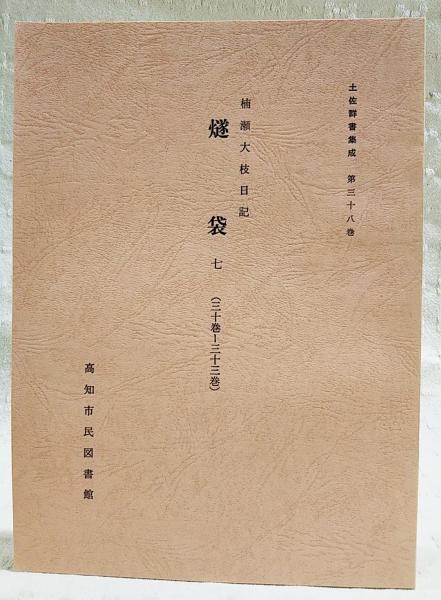 土佐群書集成 第三十八巻
楠瀬大枝日記
燧袋 七 (三十巻ー三十三巻)
高知市民図書館